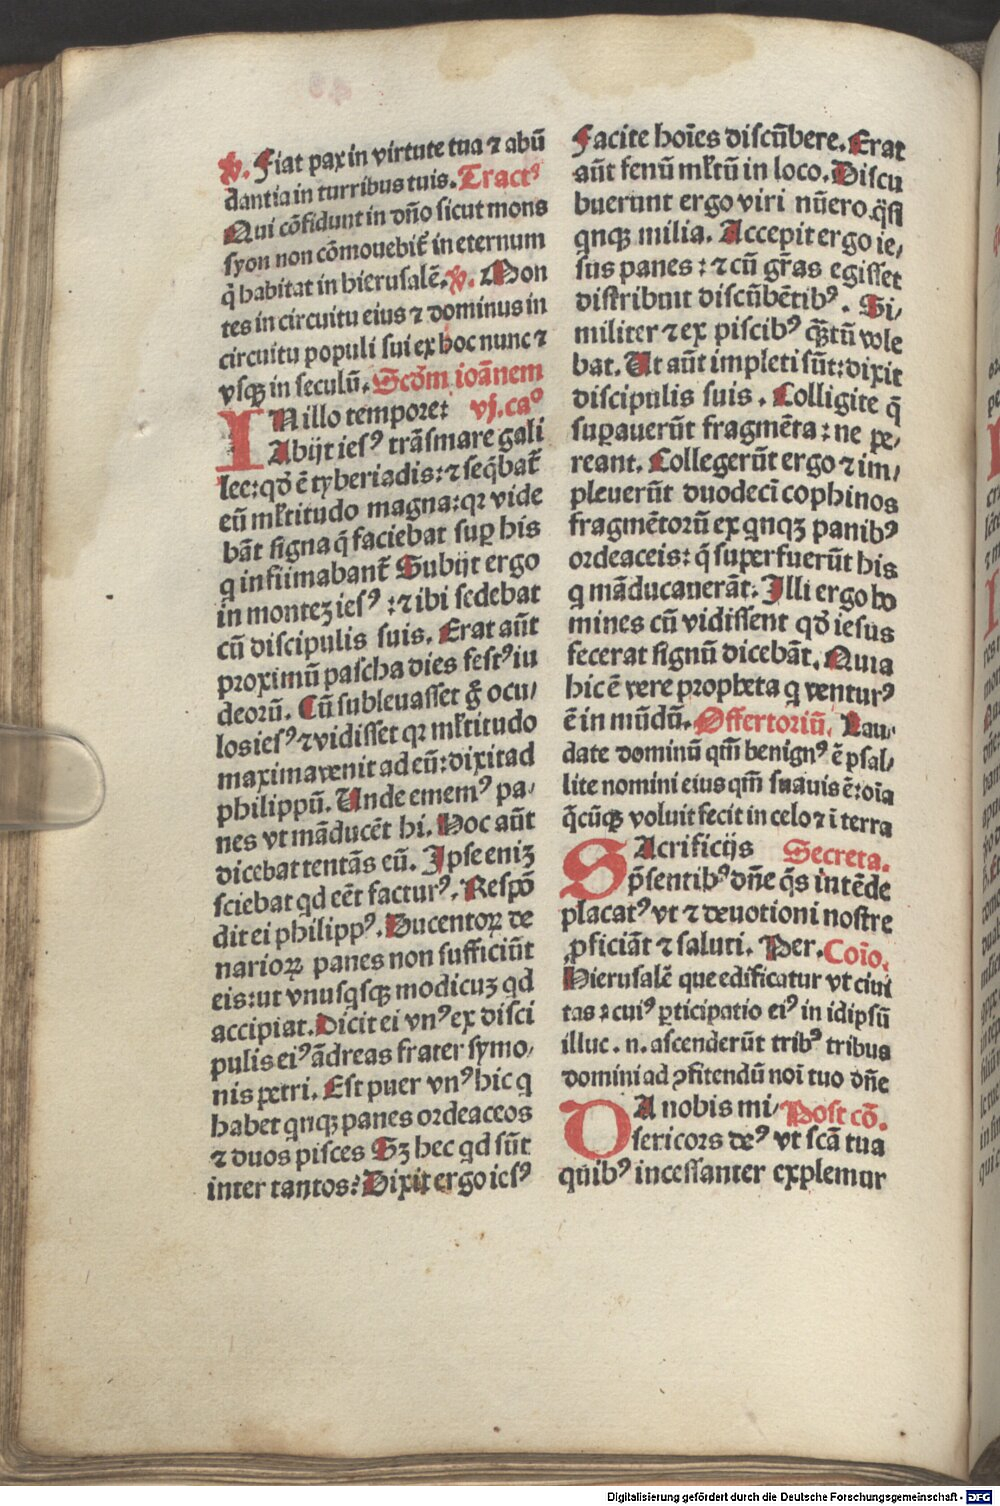 ℣. Fiat pax in virtute tua ⁊ abū
dantia in turribus tuis. Tractꝰ
Qui cōfidunt in dn̄o sicut mons
syon non cōmouebit᷑ in eternum
q̄ habitat in hierusalē. ℣. Mon
tes in circuitu eius ⁊ dominus in
circuitu populi sui ex hoc nunc ⁊
vsqꝫ in seculū. Scd̄m ioānem
IN illo tempore: vj. caº
Abijt iesꝰ trās mare gali
lee: qd̄ ē tyberiadis: ⁊ seq̄bat᷑
eū mltitudo magna: qꝛ vide
bāt signa q̄ faciebat suꝑ his
q infirmabant᷑ Subijt ergo
in monteꝫ iesꝰ : ⁊ ibi sedebat
cū discipulis suis. Erat aūt
proximū pascha dies festꝰ iu
deorū. Cū subleuasset g̊ ocu⸗
los iesꝰ ⁊ vidisset qꝛ mltitudo
maxima venit ad eū: dixit ad
philippū. Unde ememꝰ pa⸗
nes vt māducēt hi. Hoc aūt
dicebat tentās eū. Ipse eniꝫ
sciebat qd eēt facturꝰ. Respō
dit ei philippꝰ. Ducentoꝝ de
narioꝝ panes non sufficiūt
eis: ut vnusqsqꝫ modicuꝫ qd
accipiat. Dicit ei vnꝰ ex disci
pulis eiꝰ ādreas frater symo⸗
nis petri. Est puer vnꝰ hic q
habet qnqꝫ panes ordeaceos
⁊ duos pisces Sꝫ hec qd sūt
inter tantos: Dixit ergo iesꝰ
Facite hoīes discūbere. Erat
aūt fenū mltū in loco. Discu
buerunt ergo viri nūero q̄si
qnqꝫ milia. Accepit ergo ie⸗
sus panes : ⁊ cū gr̄as egisset
distribuit discūbētibꝰ. Si⸗
militer ⁊ ex piscibꝰ qȝtū vole
bat. Ut aūt impleti sūt: dixit
discipulis suis. Colligite q̄
suꝑauerūt fragmēta : ne pe⸗
reant. Collegerūt ergo ⁊ im⸗
pleuerūt duodecī cophinos
fragmētorū ex qnqꝫ panibꝰ
ordeaceis: q̄ superfuerūt his
q māducauerāt. Illi ergo ho
mines cū vidissent qd̄ iesus
fecerat signū dicebāt. Quia
hic ē vere propheta q venturꝰ
ē in mūdū. Offertoriū. Lau⸗
date dominū qm̄ benignꝰ ē psal⸗
lite nomini eius qm̄ suauis ē: oīa
q̄cūqꝫ voluit fecit in celo ⁊ ī terra
SAcrificijs Secreta.
p̄sentibꝰ dn̄e q̄s intēde
placatꝰ vt ⁊ deuotioni nostre
ꝓficiāt ⁊ saluti. Per. Coīo.
Hierusalē que edificatur vt ciui
tas : cuiꝰ ꝑticipatio eiꝰ in idipsū
illuc . n. ascenderūt tribꝰ tribus
domini ad ꝯfitendū noī tuo dn̄e
DA nobis mi⸗ Post cō.
sericors deꝰ vt scā tua
quibꝰ incessanter explemur
Digitalisierung gefördert durch die Deutsche Forschungsgemeinschaft - DFG